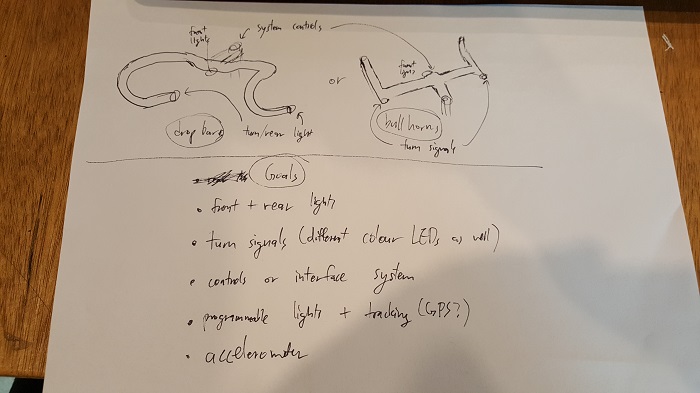 front
lights
system controls
or
front
lights
drop bars
turn/rear light
bull horns
turn signals
Goals
• front + rear lights
• turn signals (different colour LEDs as well)
• controls or interface system
• programmable lights + tracking (GPS?)
• accelerometer